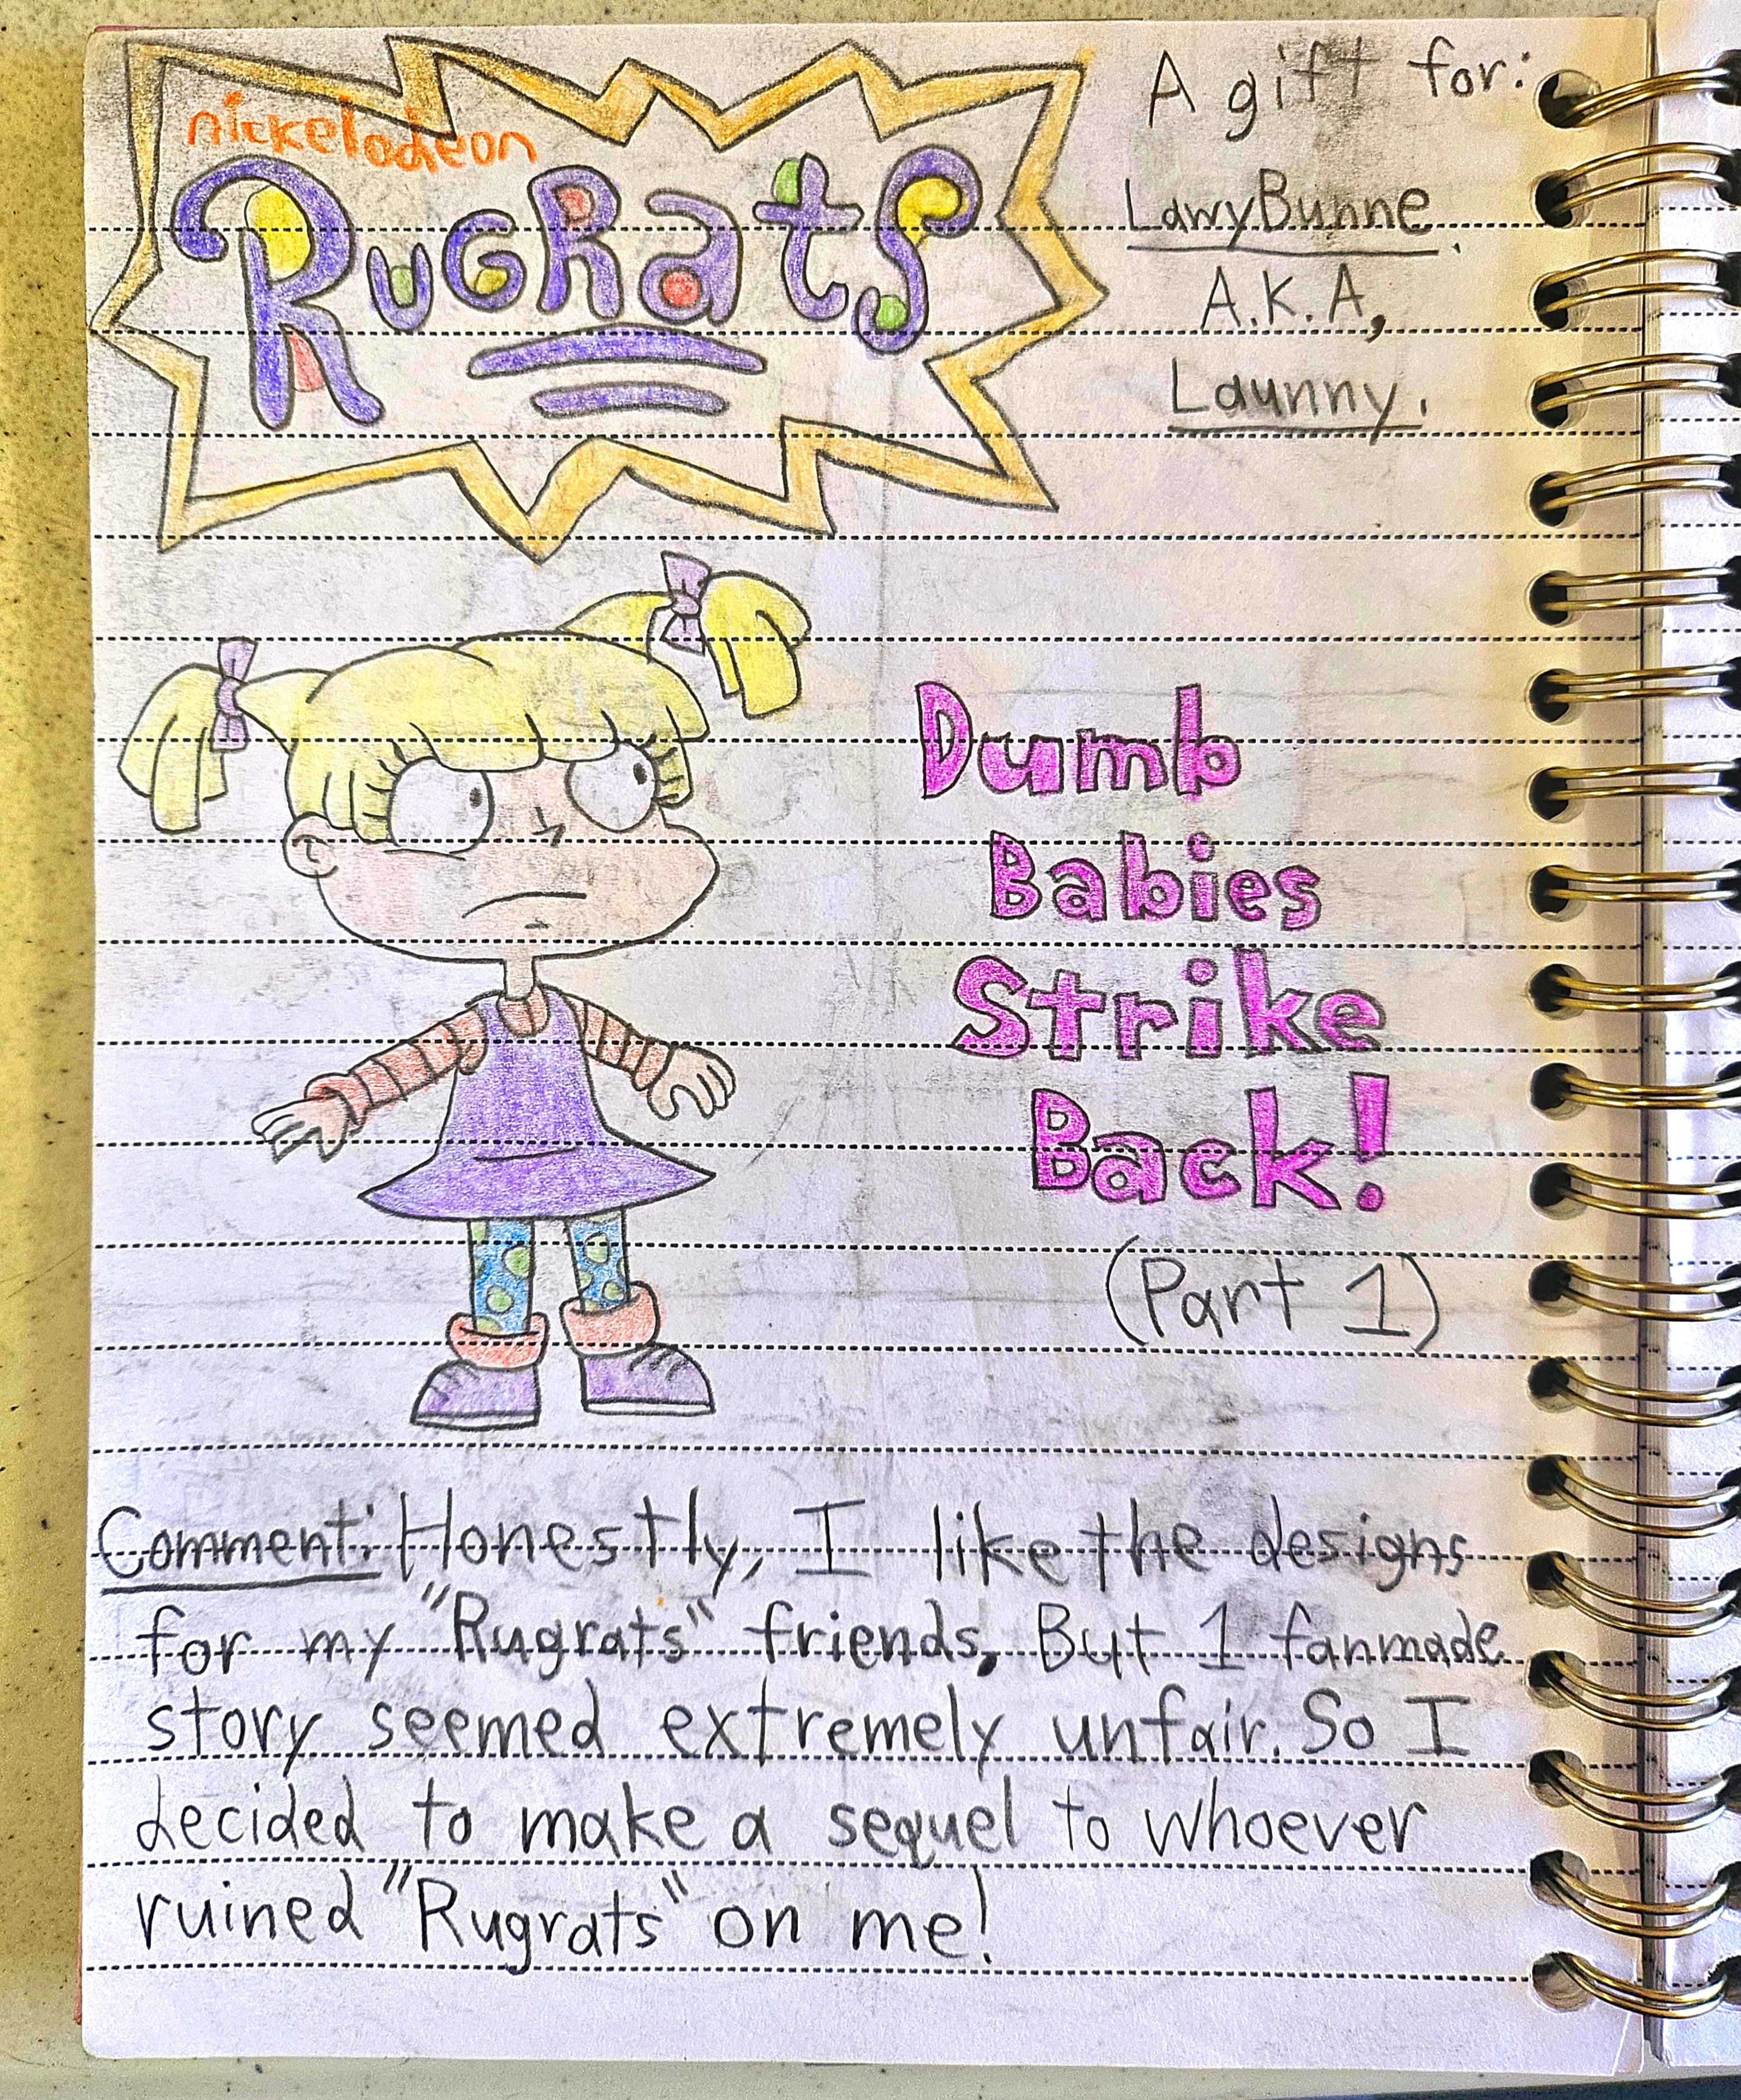 nickelodeon
RUGRats
A gift for:
LawyBunne.
A.K.A,
Launny.
Dumb
Babies
Strike
Back!
(Part 1)
Comment: Honestly, I like the designs
for my "Rugrats" friends, But 1 fanmade
story seemed extremely unfair. So I
decided to make a sequel to whoever
ruined "Rugrats" on me!